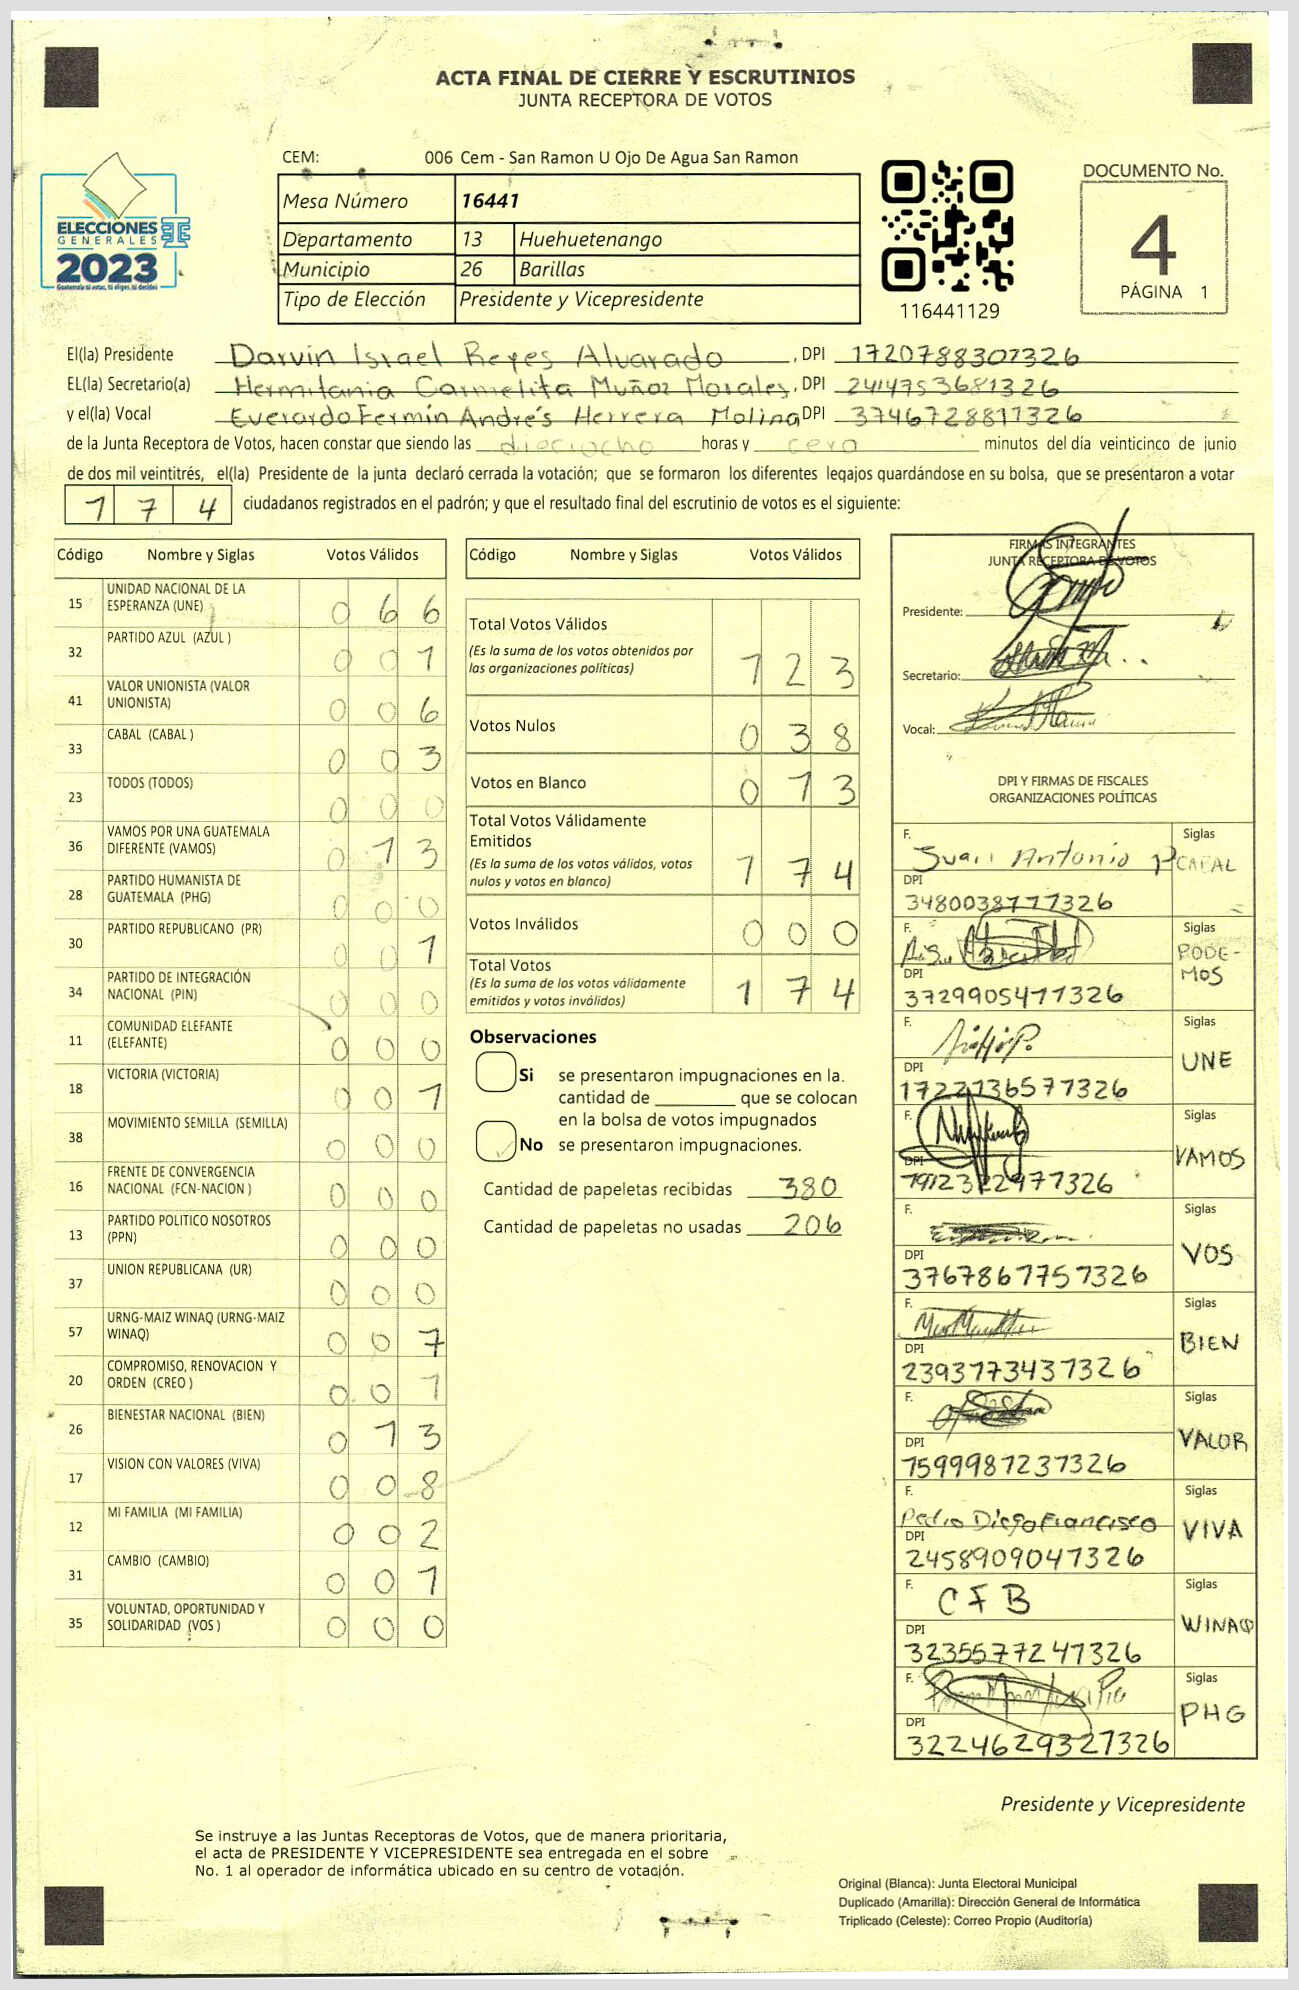 ACTA FINAL DE CIERRE Y ESCRUTINIOS
JUNTA RECEPTORA DE VOTOS
ELECCIONES
GENERALES
2023
Guatemala tú votas, tú eliges, tú decides
CEM: 006 Cem - San Ramon U Ojo De Agua San Ramon
Mesa Número 16441
Departamento 13 Huehuetenango
Municipio 26 Barillas
Tipo de Elección Presidente y Vicepresidente
116441129
DOCUMENTO No.
4
PÁGINA 1
El(la) Presidente Darvin Israel Reyes Alvarado, DPI 1720788301326
EL(la) Secretario(a) Hermitania Carmelita Muñoz Morales, DPI 2414753681326
y el(la) Vocal Everardo Fermín Andrés Herrera Molina DPI 3746728811326
de la Junta Receptora de Votos, hacen constar que siendo las dieciocho horas y cero minutos del día veinticinco de junio
de dos mil veintitrés, el(la) Presidente de la junta declaró cerrada la votación; que se formaron los diferentes legajos guardándose en su bolsa, que se presentaron a votar
1 7 4 ciudadanos registrados en el padrón; y que el resultado final del escrutinio de votos es el siguiente:
Código Nombre y Siglas Votos Válidos
15 UNIDAD NACIONAL DE LA ESPERANZA (UNE) 0 6 6
32 PARTIDO AZUL (AZUL ) 0 0 1
41 VALOR UNIONISTA (VALOR UNIONISTA) 0 0 6
33 CABAL (CABAL ) 0 0 3
23 TODOS (TODOS) 0 0 0
36 VAMOS POR UNA GUATEMALA DIFERENTE (VAMOS) 0 1 3
28 PARTIDO HUMANISTA DE GUATEMALA (PHG) 0 0 0
30 PARTIDO REPUBLICANO (PR) 0 0 1
34 PARTIDO DE INTEGRACIÓN NACIONAL (PIN) 0 0 0
11 COMUNIDAD ELEFANTE (ELEFANTE) 0 0 0
18 VICTORIA (VICTORIA) 0 0 1
38 MOVIMIENTO SEMILLA (SEMILLA) 0 0 0
16 FRENTE DE CONVERGENCIA NACIONAL (FCN-NACION ) 0 0 0
13 PARTIDO POLITICO NOSOTROS (PPN) 0 0 0
37 UNION REPUBLICANA (UR) 0 0 0
57 URNG-MAIZ WINAQ (URNG-MAIZ WINAQ) 0 0 7
20 COMPROMISO, RENOVACION Y ORDEN (CREO ) 0 0 1
26 BIENESTAR NACIONAL (BIEN) 0 1 3
17 VISION CON VALORES (VIVA) 0 0 8
12 MI FAMILIA (MI FAMILIA) 0 0 2
31 CAMBIO (CAMBIO) 0 0 1
35 VOLUNTAD, OPORTUNIDAD Y SOLIDARIDAD (VOS ) 0 0 0
Código Nombre y Siglas Votos Válidos
Total Votos Válidos 1 2 3
(Es la suma de los votos obtenidos por
las organizaciones políticas)
Votos Nulos 0 3 8
Votos en Blanco 0 1 3
Total Votos Válidamente
Emitidos 1 7 4
(Es la suma de los votos válidos, votos
nulos y votos en blanco)
Votos Inválidos 0 0 0
Total Votos 1 7 4
(Es la suma de los votos válidamente
emitidos y votos inválidos)
Observaciones
Si se presentaron impugnaciones en la.
cantidad de ________ que se colocan
en la bolsa de votos impugnados
No se presentaron impugnaciones.
Cantidad de papeletas recibidas 380
Cantidad de papeletas no usadas 206
FIRMAS INTEGRANTES
JUNTA RECEPTORA DE VOTOS
Presidente:
Secretario:
Vocal:
DPI Y FIRMAS DE FISCALES
ORGANIZACIONES POLÍTICAS
F. Juan Antonio P Siglas CABAL
DPI 3480038771326
F. Siglas PODE-
MOS
DPI 3729905411326
F. Siglas UNE
DPI 1722136571326
F. Siglas VAMOS
DPI
F. Siglas VOS
DPI 3767867751326
F. Siglas BIEN
DPI 2393773431326
F. Siglas VALOR
DPI 1599987231326
F. Pedro Diego Francisco Siglas VIVA
DPI 2458909041326
F. C F B Siglas WINAQ
DPI 3235577241326
F. Siglas PHG
DPI 3224629321326
Presidente y Vicepresidente
Se instruye a las Juntas Receptoras de Votos, que de manera prioritaria,
el acta de PRESIDENTE Y VICEPRESIDENTE sea entregada en el sobre
No. 1 al operador de informática ubicado en su centro de votación.
Original (Blanca): Junta Electoral Municipal
Duplicado (Amarilla): Dirección General de Informática
Triplicado (Celeste): Correo Propio (Auditoría)